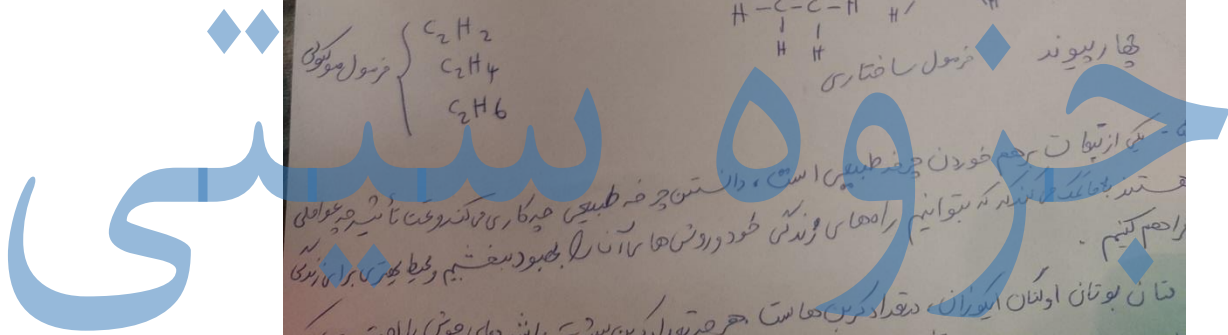 H-C-C-H H
H H
چهار پیوند
فرمول ساختاری
فرمول مولکولی
C2H2
C2H4
C2H6
یکی از برهم خوردن چرخه طبیعی است، دانستن چرخه طبیعی چه کاری می‌کند و تحت تأثیر چه عواملی
هستند به ما کمک می‌کند که بتوانیم راه‌های زندگی خود و روش‌های آنان را بهبود ببخشیم و محیط بهتری برای زندگی
فراهم کنیم.
بوتان اوکتان ایکوزان، در تعداد کربن هاست هر چه تعداد کربن
جزوه سیتی